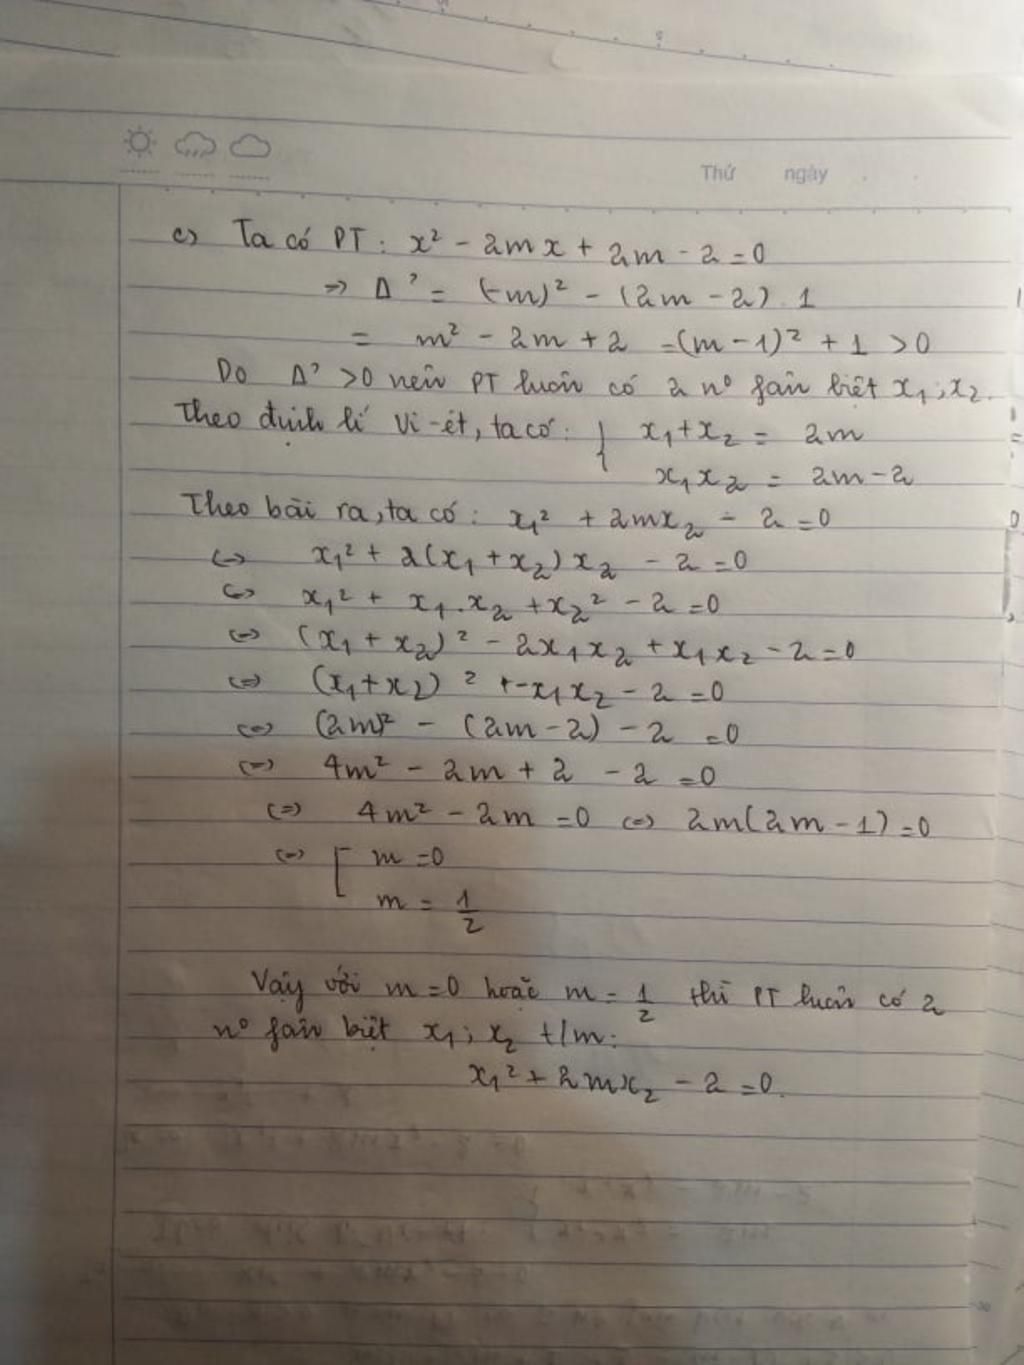 Thứ ngày
c) Ta có PT: x² - 2mx + 2m - 2 = 0
=> Δ' = (-m)² - (2m - 2).1
= m² - 2m + 2 = (m - 1)² + 1 > 0
Do Δ' > 0 nên PT luôn có 2 nº fân biệt x₁; x₂.
Theo định lí Vi-ét, ta có: { x₁ + x₂ = 2m
x₁x₂ = 2m - 2
Theo bài ra, ta có: x₁² + 2mx₂ - 2 = 0
<=> x₁² + 2(x₁ + x₂)x₂ - 2 = 0
<=> x₁² + x₁.x₂ + x₂² - 2 = 0
<=> (x₁ + x₂)² - 2x₁x₂ + x₁x₂ - 2 = 0
<=> (x₁ + x₂)² - x₁x₂ - 2 = 0
<=> (2m)² - (2m - 2) - 2 = 0
<=> 4m² - 2m + 2 - 2 = 0
<=> 4m² - 2m = 0 <=> 2m(2m - 1) = 0
<=> [ m = 0
m = 1/2
Vậy với m = 0 hoặc m = 1/2 thì PT luôn có 2
nº fân biệt x₁; x₂ t/m:
x₁² + 2mx₂ - 2 = 0.